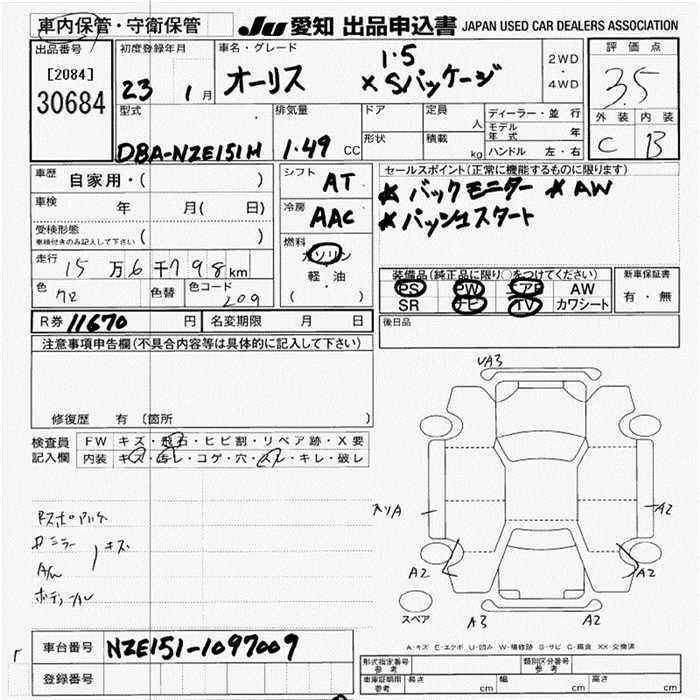 車内保管・守衛保管 JU 愛知 出品申込書 JAPAN USED CAR DEALERS ASSOCIATION
出品番号 初度登録年月 車名・グレード 評価点
[2084] 1.5 2WD
30684 23 1月 オーリス × Sパッケージ ・ 3.5
4WD
型式 排気量 ドア 定員 人 ディーラー・並行 外装 内装
モデル年式 年 C B
DBA-NZE151H 1.49 CC 形状 積載 kg ハンドル 左・右
車歴 自家用・( ) シフト AT セールスポイント(正常に機能するものに限ります)
車検 年 月( 日) 冷房 AAC ★バックモニター ★AW
受検形態 ★パッシュスタート
車検付きのみ記入して下さい ( ) 燃料
走行 15万6千798km ガソリン 装備品(純正品に限り○をつけてください) 新車保証書
色 クロ 色替 色コード 209 軽・油 PS PW エアB AW 有・無
( ・ ) SR ナビ TV カワシート
R券 11670 円 名変期限 月 日 後日品
注意事項申告欄(不具合内容等は具体的に記入して下さい)
UA3
修復歴 有 (箇所 )
検査員 FW キズ・飛石・ヒビ割・リペア跡・X要
記入欄 内装 キズ・汚レ・コゲ・穴・スレ・キレ・破レ
A2
キズ
A/W A2 A2
スペア A3 A2
車台番号 NZE151-1097009 A:キズ E:エクボ U:凹み W:補修跡 S:サビ C:腐食 XX:交換済
登録番号 形式指定番号 参考 類別区分番号 参考
車庫証明期 参考 長さ cm 幅 cm 高さ cm